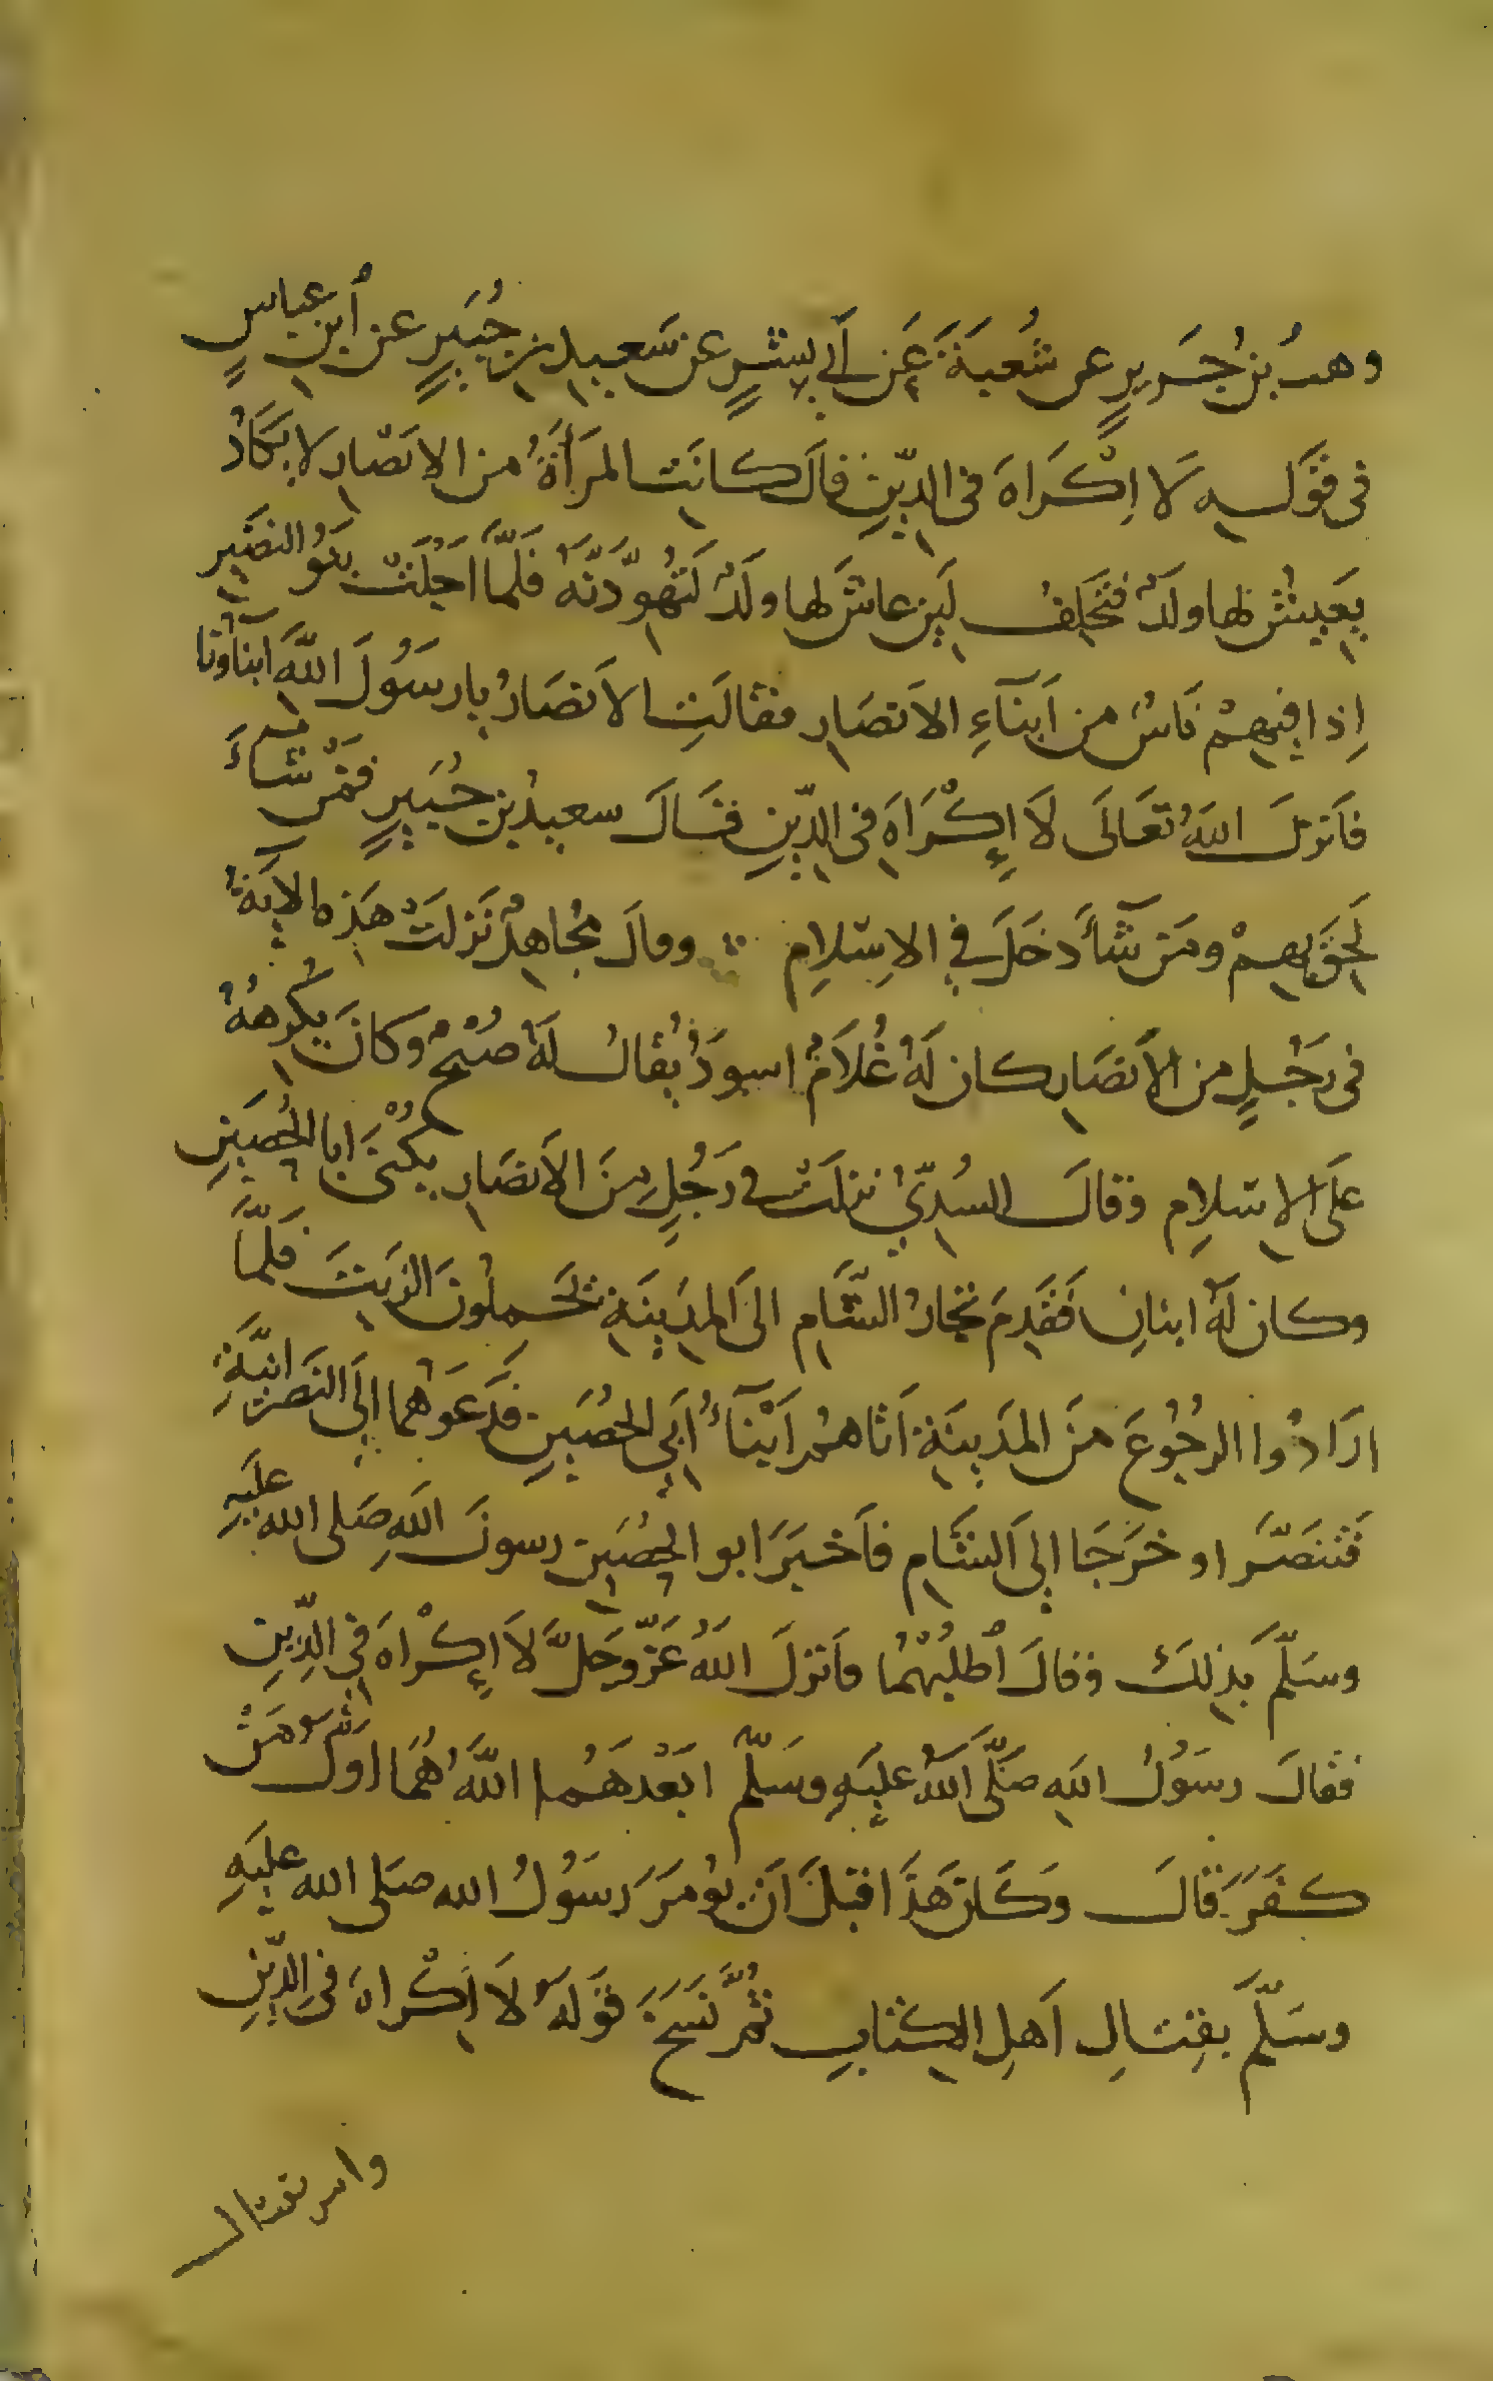 وهبُ بنُ جَرِيرٍ عن شُعبَةَ عَن أَبي بِشرٍ عن سَعيدِ بنِ جُبَيرٍ عن ٱبنِ عباسٍ
فى قَولهِ لَا اِكْرَاهَ فى الدِّينِ قالَ كانَتِ المَرأَةُ من الانصَارِ لا يَكَادُ
يَعِيشُ لها ولَدٌ فتَحلِفُ لَئِن عاشَ لها ولَدٌ لَتُهَوِّدَنَّهُ فَلَمَّا اُجْلِيَتْ بَنُو النضَيرِ
اِذا فِيهِمْ نَاسٌ من اَبنَآءِ الاَنصَارِ فقالَتِ الاَنصَارُ يارسَوُلَ اللَّهِ اَبنَآؤنا
فاَنزلَ اللهُ تعَالَى لاَ إِكْرَاهَ فى الدِّينِ قالَ سعيدُ بن جُبَيرٍ فمَنْ شاءَ
لَحِقَ بِهمْ ومَن شآءَ دَخَلَ فِي الاِسْلامِ ۞ وقالَ مُجاهِدٌ نَزلَتْ هذِه الآيَةُ
فى رَجُلٍ من الأَنصَارِ كان لَهُ غُلاَمٌ اسودُ يُقالُ لَهُ صُبْحٌ وكانَ يُكرِهُهُ
عَلَى الاِسْلامِ وقالَ السُدِّيُّ نزلَتْ فى رَجُلٍ مِنَ الاَنصَارِ يُكْنَى ابا الحُصَينِ
وكان لَهُ ابنانِ فقَدِمَ تجارُ الشَّامِ الى المَدِينَةِ يَحمِلُونَ الزَيتَ فَلَمَّا
ارَادُوا الرجُوُعَ مِنَ المَدِينَةِ اَتاهُم اَبْنَآءُ اَبِي الحُصَينِ فدَعَوهُما اِلَى النَصرَانِيَّةِ
فَتَنَصَّرا وخَرَجَا اِلى الشَامِ فاَخبَرَ ابو الحُصَينِ رسولَ اللهِ صَلى الله علَيهِ
وسَلَّمَ بذِلكَ وقالَ ٱطلُبْهُمَا فاَنزلَ اللهُ عَزَّ وجَلَّ لاَ إِكْراهَ فِي الدِّينِ
فقالَ رسَوُلُ اللهِ صَلَّى اللهُ علَيهِ وسَلَّمَ ابَعْدَهُما اللَّهُ هُمَا اَوَّلُ مَنْ
كفَرَ قالَ وَكَان هَذَا قبلَ اَن يُؤمَرَ رَسوُلُ الله صلى الله عليَهِ
وسَلَّمَ بقِتالِ اَهلِ الكِتابِ ثُمَّ نَسَخَ قَولَهُ لاَ اِكْراهَ فى الدِّينِ
وامر بقتال